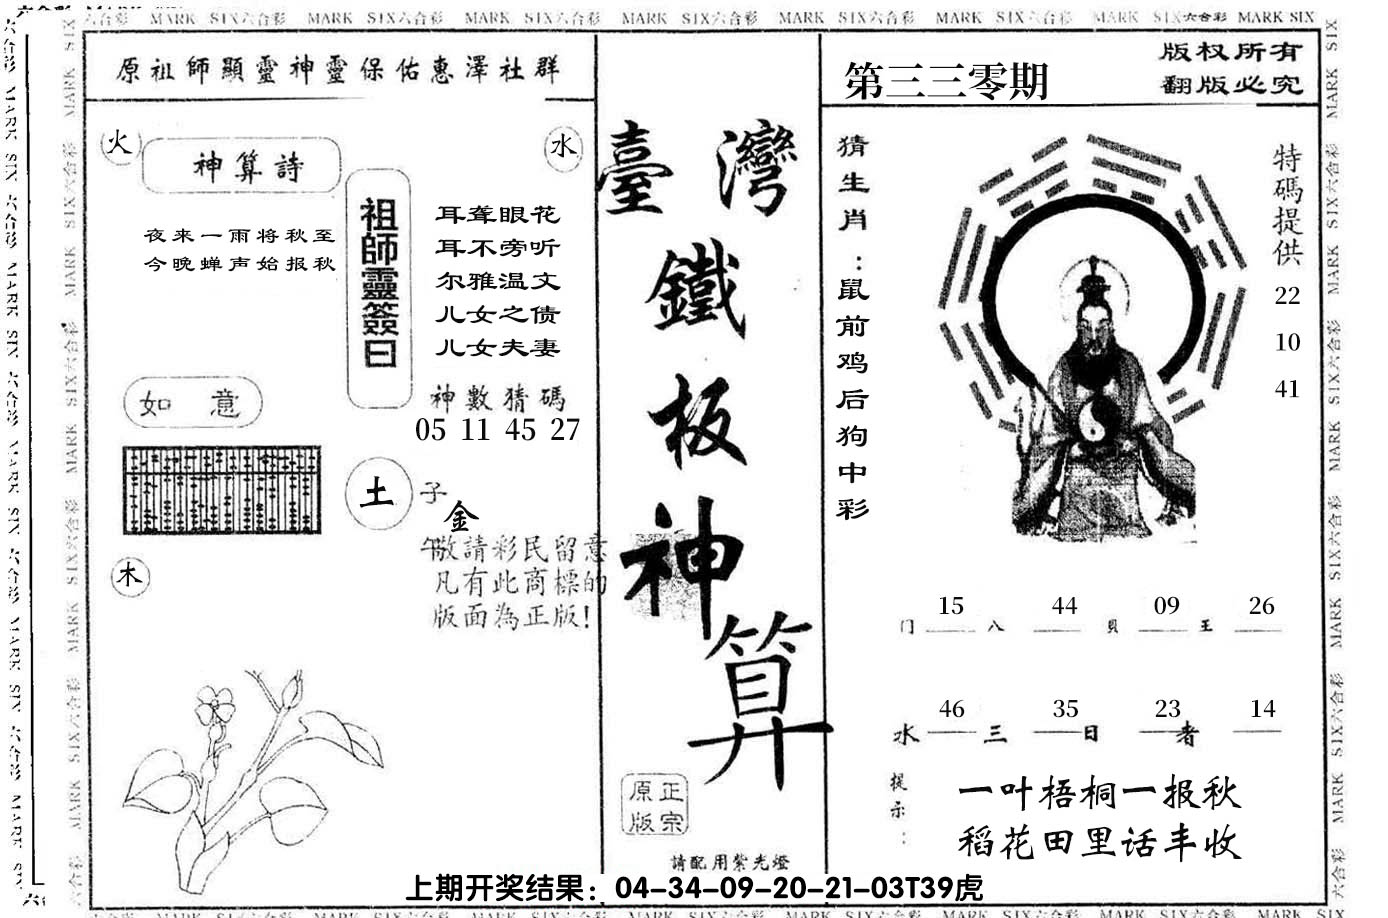 六合彩 MARK SIX六合彩 MARK SIX六合彩 MARK SIX六合彩 MARK SIX六合彩 MARK SIX六合彩 MARK SIX六合彩 MARK SIX六合彩 MARK SIX
原祖師顯靈神靈保佑惠澤社群
火
水
神算詩
夜来一雨将秋至
今晚蝉声始报秋
祖師靈簽曰
耳聋眼花
耳不旁听
尔雅温文
儿女之债
儿女夫妻
神數猜碼
05 11 45 27
如意
土
子
金
午
敬請彩民留意
凡有此商標的
版面為正版!
木
臺灣
鐵
板
神
算
正宗
原版
請配用紫光燈
第三三零期
版权所有
翻版必究
猜生肖:鼠前鸡后狗中彩
特碼提供
22
10
41
15 44 09 26
门 八 貝 王
46 35 23 14
水 三 日 者
提示:
一叶梧桐一报秋
稻花田里话丰收
上期开奖结果：04-34-09-20-21-03T39虎